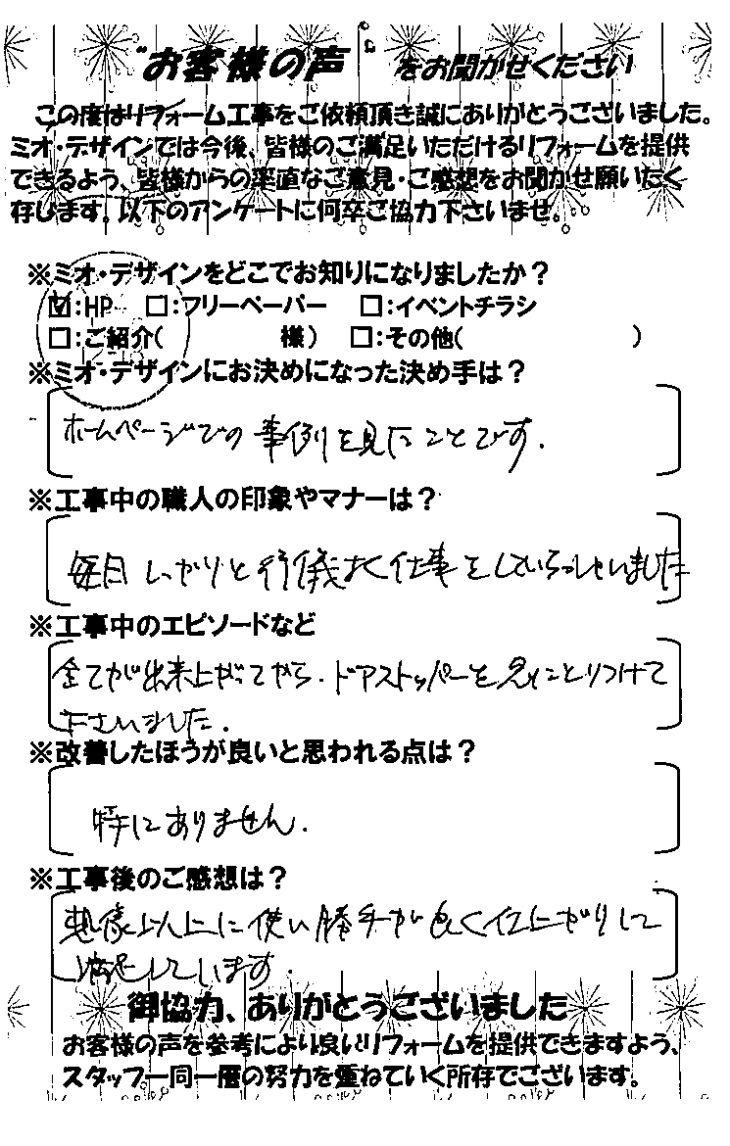 "お客様の声" をお聞かせください
この度はリフォーム工事をご依頼頂き誠にありがとうございました。
ミオ・デザインでは今後、皆様のご満足いただけるリフォームを提供
できるよう、皆様からの率直なご意見・ご感想をお聞かせ願いたく
存じます。以下のアンケートに何卒ご協力下さいませ。
※ミオ・デザインをどこでお知りになりましたか？
☑:HP □:フリーペーパー □:イベントチラシ
□:ご紹介( 様) □:その他( )
※ミオ・デザインにお決めになった決め手は？
ホームページでの事例を見たことです.
※工事中の職人の印象やマナーは？
毎日しっかりと行儀よく仕事をしていらっしゃいました
※工事中のエピソードなど
全てが出来上がってから、ドアストッパーを急にとりつけて
下さいました.
※改善したほうが良いと思われる点は？
特にありません.
※工事後のご感想は？
想像以上に使い勝手が良く仕上がりして
満足しています.
御協力、ありがとうございました
お客様の声を参考により良いリフォームを提供できますよう、
スタッフ一同一層の努力を重ねていく所存でございます。